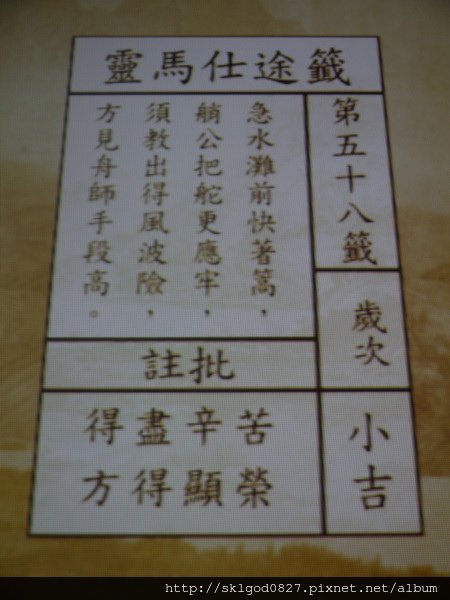 靈馬仕途籤
第五十八籤
歲次
小吉
急水灘前快著篙，
艄公把舵更應牢，
須教出得風波險，
方見舟師手段高。
註批
得盡辛苦
方得顯榮
http://sklgod0827.pixnet.net/album